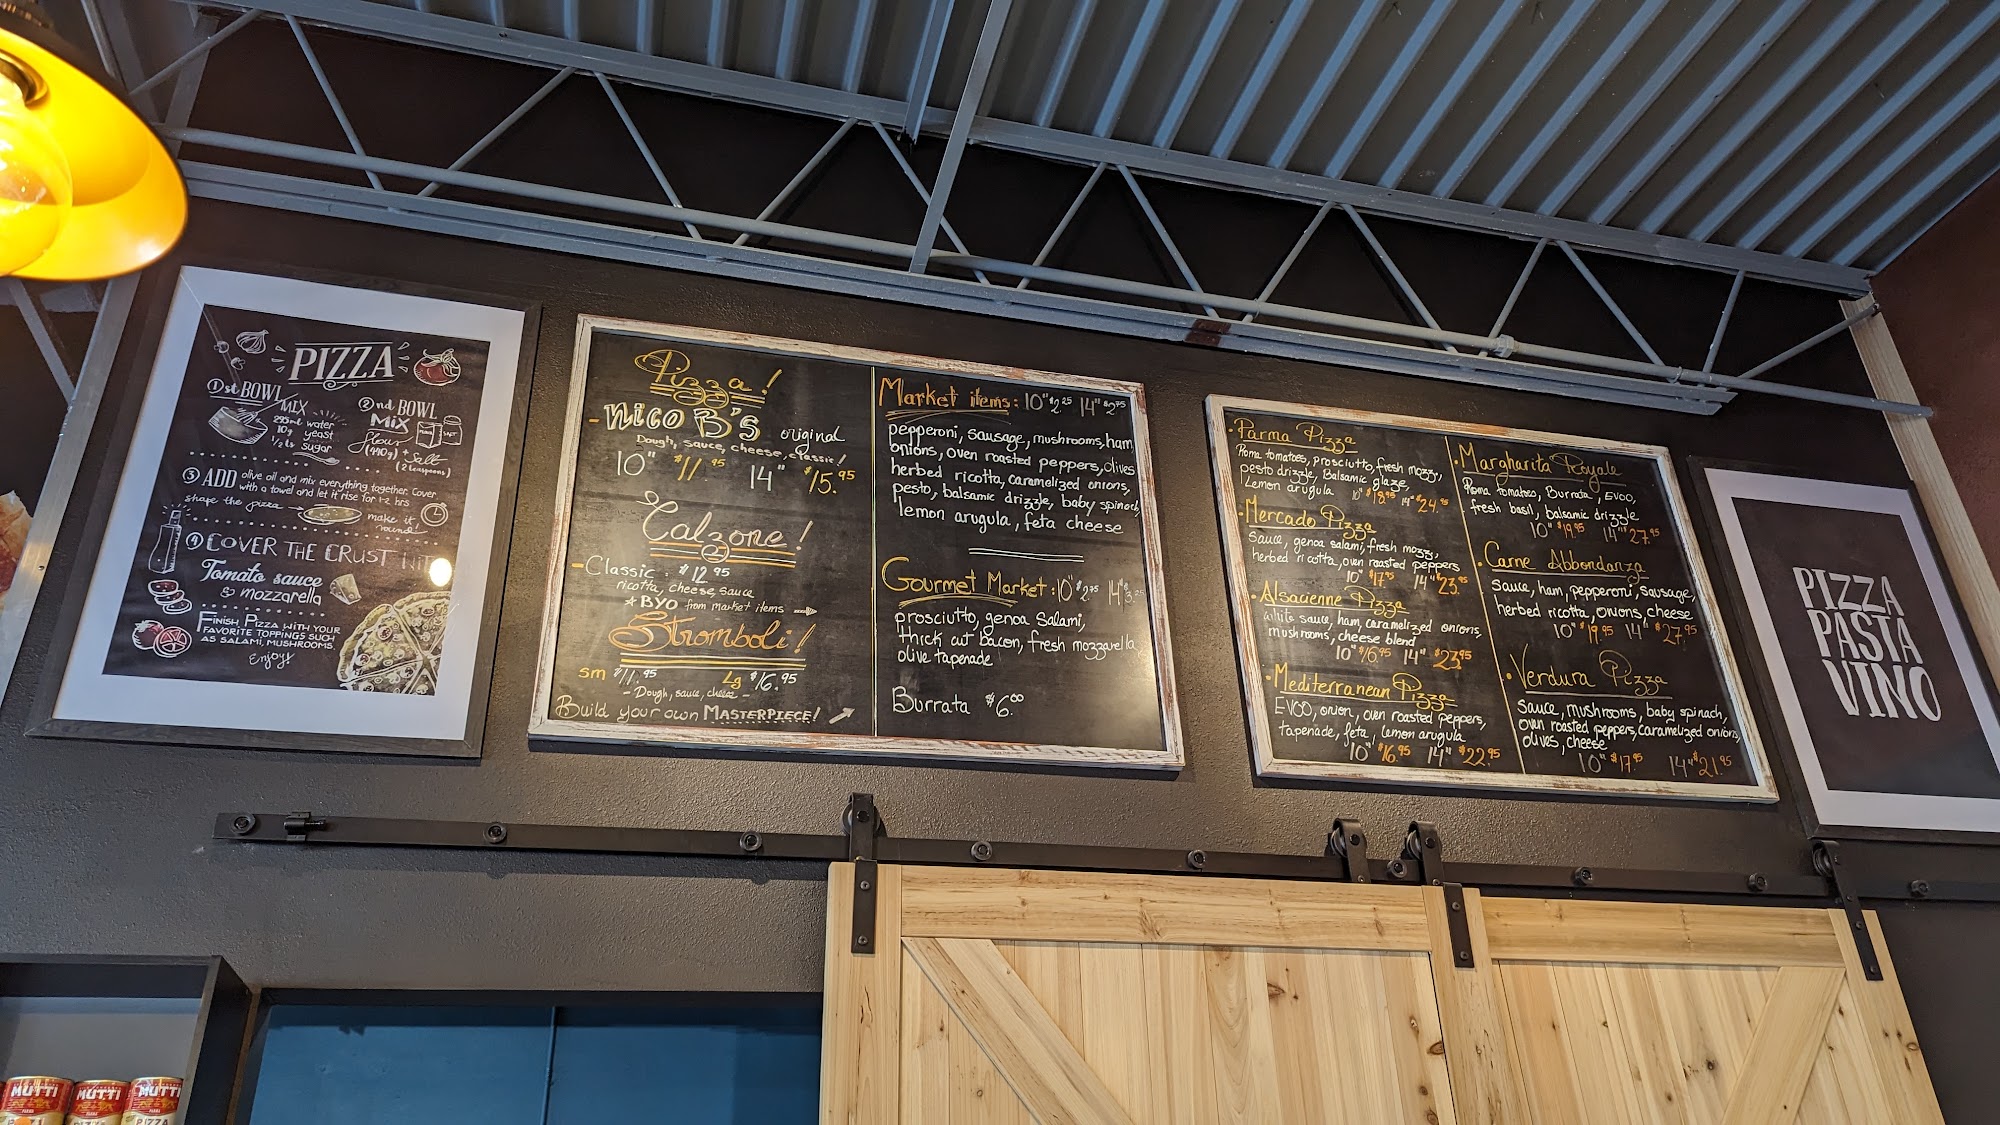 PIZZA
1st BOWL
MIX
295ml water
10g yeast
1/2 ts sugar
2nd BOWL
MIX
flour
(440g) +
Salt
(2 teaspoons)
SALT
3 ADD olive oil and mix everything together. Cover
with a towel and let it rise for 1-2 hrs
shape the pizza
make it
round
4 COVER THE CRUST
Tomato sauce
& mozzarella
FINISH PIZZA WITH YOUR
FAVORITE TOPPINGS SUCH
AS SALAMI, MUSHROOMS.
Enjoy!
Pizza!
- Nico B's original
Dough, sauce, cheese, classic!
10" $11.95 14" $15.95
Calzone!
- Classic: $12.95
ricotta, cheese, sauce
★ BYO from market items →
Stromboli!
sm $11.95 Lg $16.95
- Dough, sauce, cheese -
Build your own MASTERPIECE!
Market items: 10" $2.25 14" $2.75
pepperoni, sausage, mushrooms, ham
onions, oven roasted peppers, olives
herbed ricotta, caramelized onions,
pesto, balsamic drizzle, baby spinach,
lemon arugula, feta cheese
Gourmet Market: 10" $2.75 14" $3.25
prosciutto, genoa Salami,
thick cut bacon, fresh mozzarella
olive tapenade
Burrata $6.00
• Parma Pizza
Roma tomatoes, prosciutto, fresh mozz,
pesto drizzle, Balsamic glaze,
Lemon arugula 10" $18.95 14" $24.95
• Mercado Pizza
Sauce, genoa salami, fresh mozz,
herbed ricotta, oven roasted peppers
10" $17.95 14" $23.95
• Alsacienne Pizza
white sauce, ham, caramelized onions,
mushrooms, cheese blend
10" $16.95 14" $23.95
• Mediterranean Pizza
EVOO, onion, oven roasted peppers,
tapenade, feta, lemon arugula
10" $16.95 14" $22.95
• Margharita Royale
Roma tomatoes, Burrata, EVOO,
fresh basil, balsamic drizzle
10" $19.95 14" $27.95
• Carne Abbondanza
Sauce, ham, pepperoni, sausage,
herbed ricotta, onions, cheese
10" $19.95 14" $27.95
• Verdura Pizza
Sauce, mushrooms, baby spinach,
oven roasted peppers, caramelized onions,
olives, cheese
10" $17.95 14" $21.95
PIZZA
PASTA
VINO
MUTTI
MUTTI
MUTTI
PIZZA